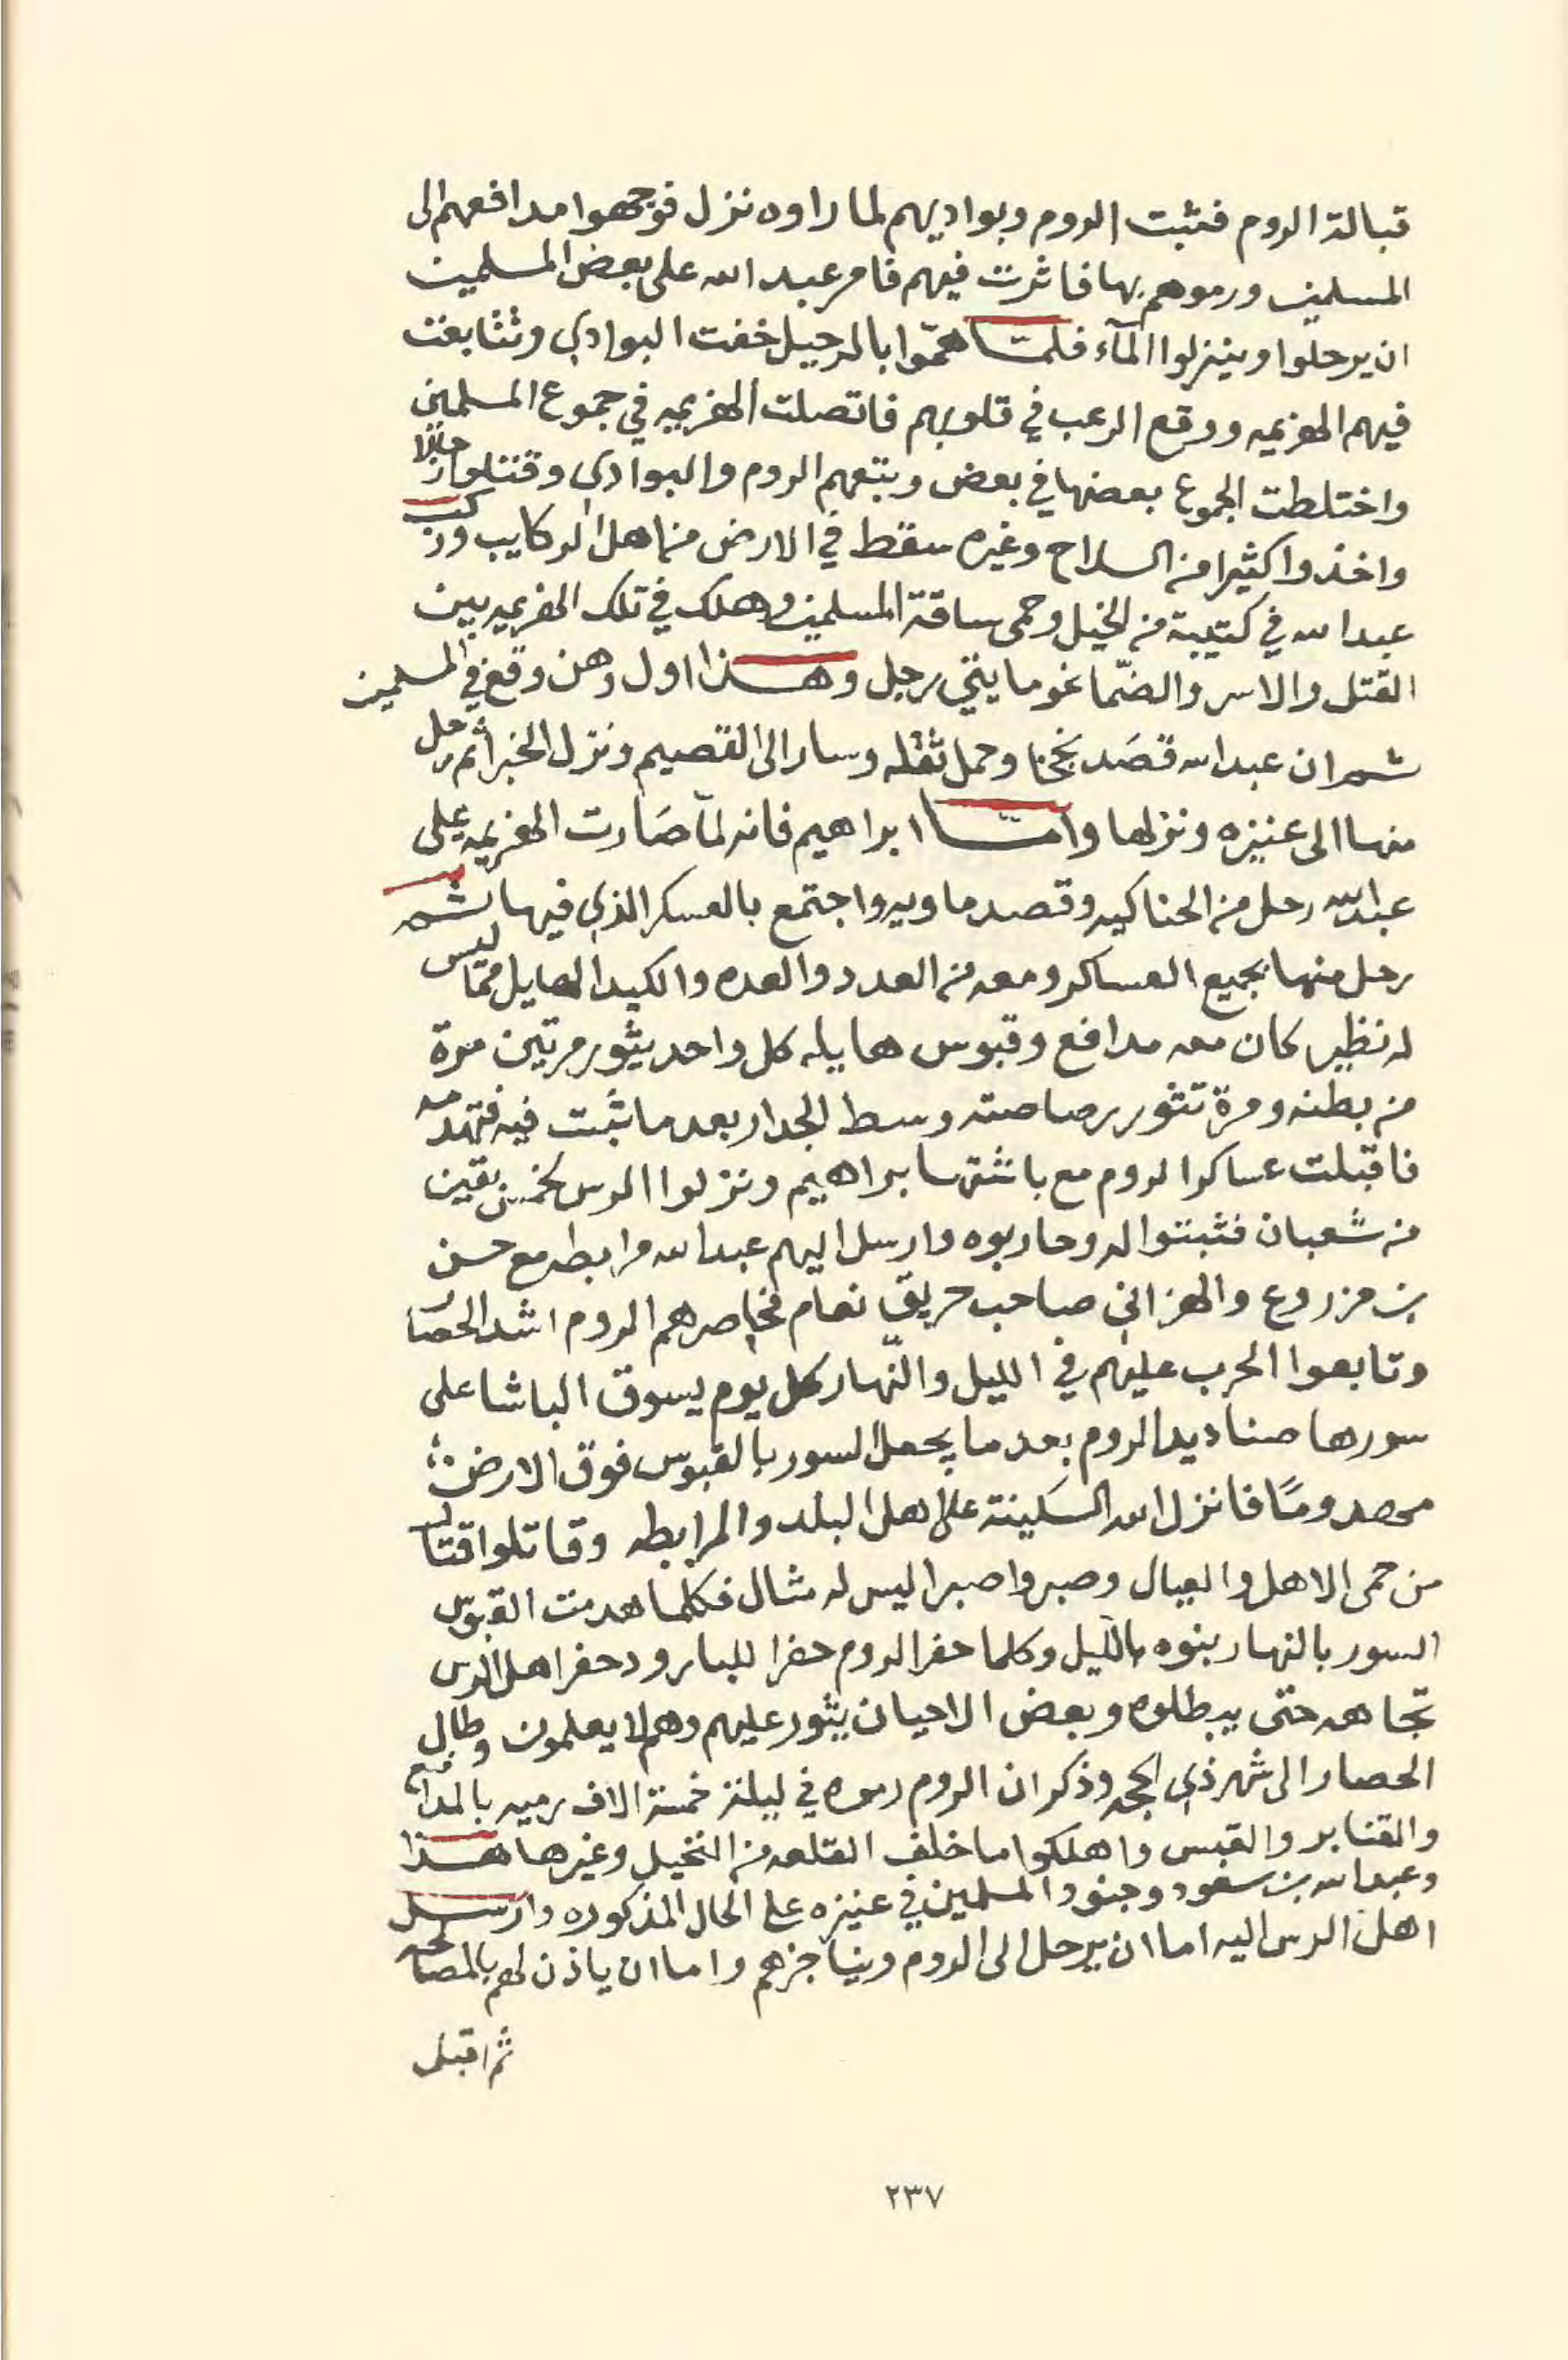 قبالة الروم فثبت الروم وبواديهم لما راوه نزل فوجهوا مدافعهم الى
المسلمين ورموهم بها فاثرت فيهم فامر عبد الله على بعض المسلمين
ان يرحلوا وينزلوا المآء فلمّا همّوا بالرحيل خفت البوادي وتتابعت
فيهم الهزيمه ووقع الرعب في قلوبهم فاتصلت الهزيمه في جموع المسلمين
واختلطت الجموع بعضها في بعض وتبعهم الروم والبوادي وقتلوا رجالا
واخذوا كثيرا من السلاح وغيره سقط في الارض من اهل الركايب وركب
عبد الله في كتيبة من الخيل وحمى ساقة المسلمين وهلك في تلك الهزيمه بين
القتل والاسر والضمّا نحو مايتي رجل وهذا اول وهن وقع في المسلمين
ثم ان عبد الله قصَد نجخا وحمل ثقله وسار الى القصيم ونزل الخبرا ثم رحل
منها الى عنيزه ونزلها وامّا ابراهيم فانه لمّا صَارت الهزيمه على
عبد الله رحل من الحناكيه وقصد ماويه واجتمع بالعسكر الذي فيها ثم
رحل منها بجميع العساكر ومعه من العدد والعده والكيد الهايل ممّا ليس
له نظير كان معه مدافع وقبوس هايله كل واحد يثور مرتين مرة
من بطنه ومرة تثور رصاصته وسط الجدار بعد ما ثبت فيه فتهدمه
فاقبلت عساكر الروم مع باشتها ابراهيم ونزلوا الرس لخمس بقين
من شعبان فثبتوا له وحاربوه وارسل اليهم عبد الله مرابطه مع حسن
بن مزروع والهزاني صاحب حريق نعام فحاصرهم الروم اشد الحصار
وتابعوا الحرب عليهم في الليل والنّهار كل يوم يسوق الباشا على
سورها صناديد الروم بعد ما يجعل السور بالقبوس فوق الارض
مهدومًا فانزل الله السَكينة على اهل البلد والمرابطه وقاتلوا قتال
من حمى الاهل والعيال وصبروا صبرا ليس له مثال فكلما هدمت القبوس
السور بالنهار بنوه بالليل وكلما حفر الروم حفرا للبارود حفر اهل الرس
تجاهه حتى يبطلوه وبعض الاحيان يثور عليهم وهم لا يعلمون وطال
الحصار الى شهر ذي الحجه وذكر ان الروم رموه في ليلة خمسة الاف رميه بالمدافع
والقنابر والقبس واهلكوا ما خلف القلعه من النخيل وغيرها هذا
وعبد الله بن سعود وجنود المسلمين في عنيزه على الحال المذكوره وارسل
اهل الرس اليه اما ان يرحل الى الروم ويناجزهم واما ان ياذن لهم بالمصالحه
ثم اقبل
٢٣٧